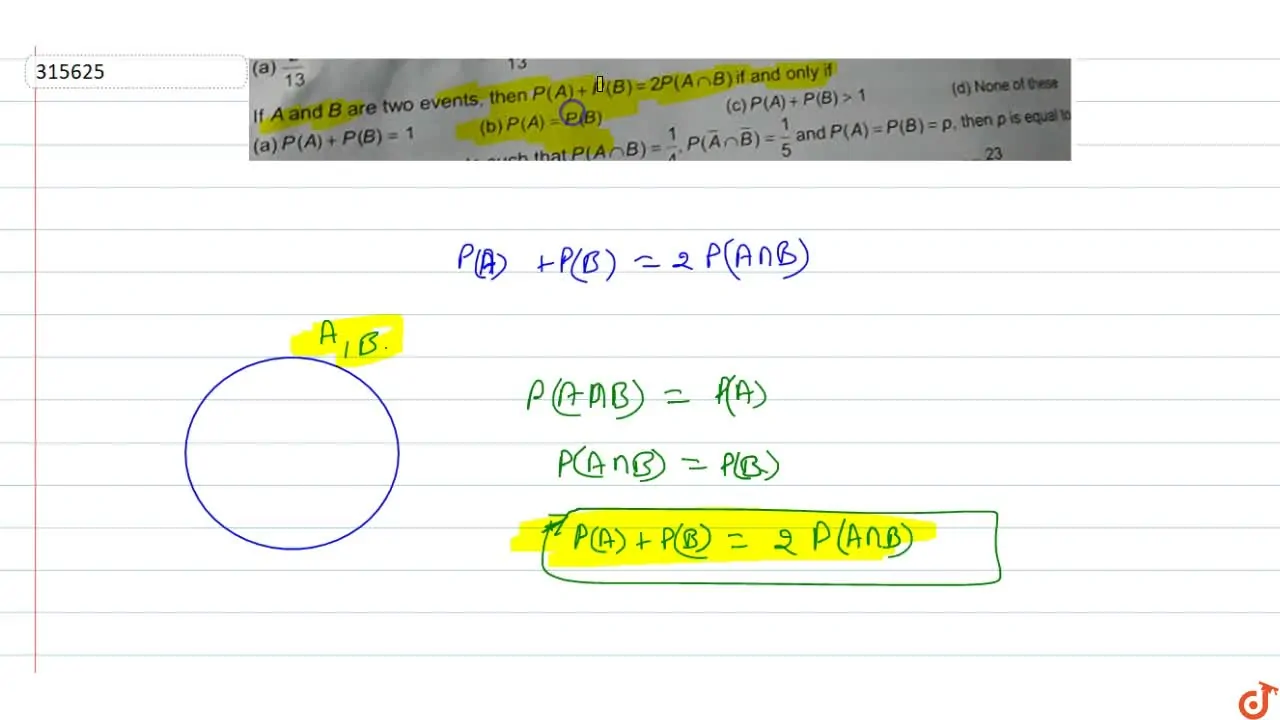 315625
(a) 13
13
If A and B are two events, then P(A)+P(B)=2P(A∩B) if and only if
(a) P(A)+P(B)=1 (b) P(A)=P(B) (c) P(A)+P(B)>1 (d) None of these
such that P(A∩B)=1/4, P(Ā∩B̄)=1/5 and P(A)=P(B)=p, then p is equal to
23
P(A) +P(B) = 2 P(A∩B)
A, B.
P(A∩B) = P(A)
P(A∩B) = P(B)
P(A) + P(B) = 2 P(A∩B)